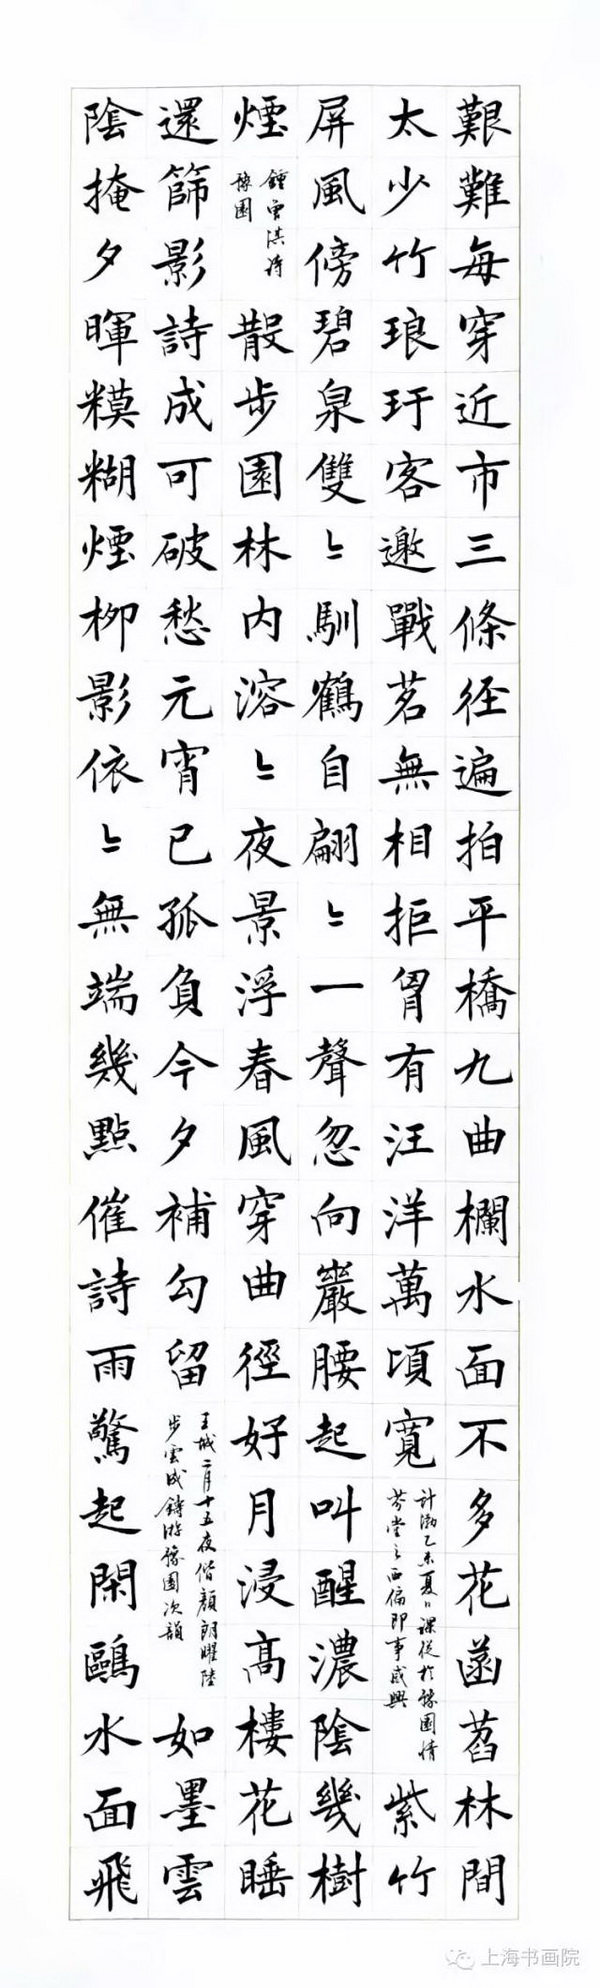 艱難每穿近市三條径遍拍平橋九曲欄水面不多花菡萏林間
太少竹琅玕客邀戰茗無相拒胷有汪洋萬頃寬
計渤乙未夏日課從於豫園情
芬堂之西偏即事感興
紫竹
屏風傍碧泉雙〻馴鶴自翩〻一聲忽向巖腰起叫醒濃陰幾樹
煙
鍾雲淇詩
豫園
散步園林内溶〻夜景浮春風穿曲徑好月浸高樓花睡
還篩影詩成可破愁元宵已孤負今夕補勾留
王城二月十五夜偕顏朗曜陸
步雲成鑄游豫園次韻
如墨雲
陰掩夕暉糢糊煙柳影依〻無端幾點催詩雨驚起閑鷗水面飛
上海书画院